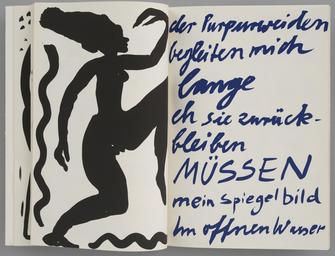 der Purpurweiden
begleiten mich
lange
eh sie zurück-
bleiben
MÜSSEN
mein Spiegelbild
Im offnen Wasser